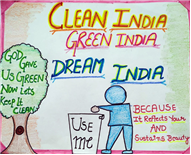 CLEAN INDIA
GREEN INDIA
DREAM INDIA
GOD
GAVE
US GREEN
NOW LETS
KEEP IT
CLEAN
USE
me
BECAUSE
IT Reflects Your
AND
SUSTAINS Beauty